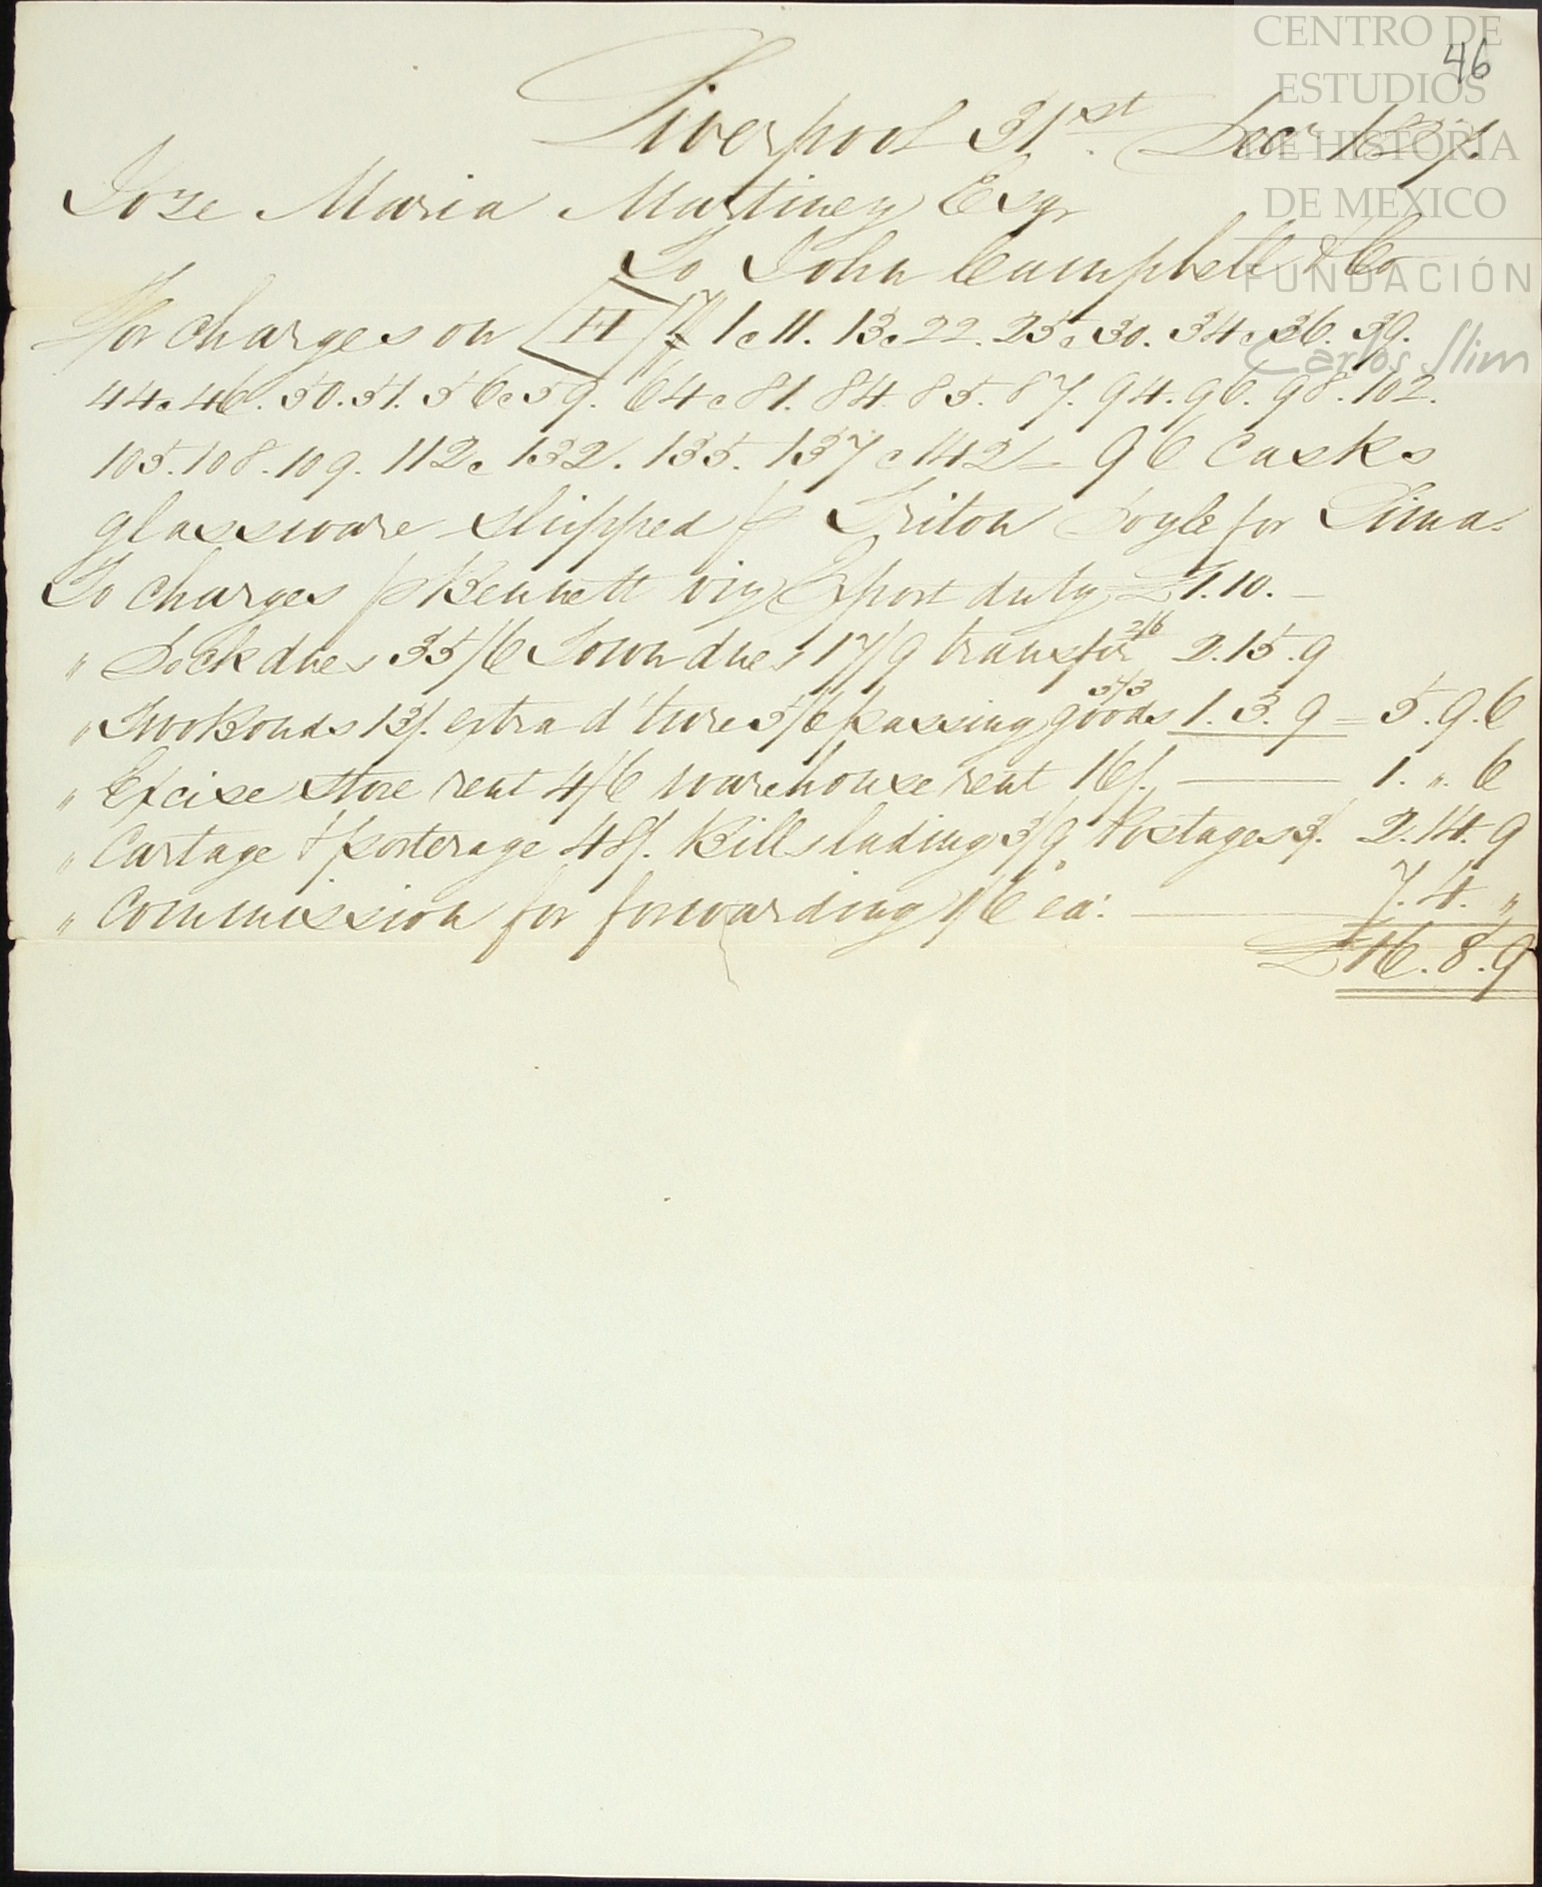 CENTRO DE
ESTUDIOS
DE HISTORIA
DE MEXICO
FUNDACIÓN
Carlos Slim
46
Liverpool 31st. Decr
Joze Maria Martinez Esqr
To John Campbell & Co
For charges on H 1 c 11. 13 c 22. 25 c 30. 34 c 36. 39.
44 c 46. 50. 51. 56 c 59. 64 c 81. 84. 85. 87. 94. 96. 98. 102.
105. 108. 109. 112 c 132. 135. 137 c 142 = 96 Casks
glassware shipped p Triton Doyle for Lima.
To charges p Bennett viz Export duty £1.10. –
" Dock dues 35/6 Town dues 17/9 transfer 2/6 2.15.9
" Two Bonds 13/. extra d'ture 5/6 passing goods 5/3 1.3.9 = 5.9.6
" Excise store rent 4/6 warehouse rent 16/. — 1. " 6
" Cartage & porterage 48/. Bills lading 3/9 Postages 3/. 2.14.9
" Commission for forwarding 1/6 ea: — 7.4. "
£16.8.9